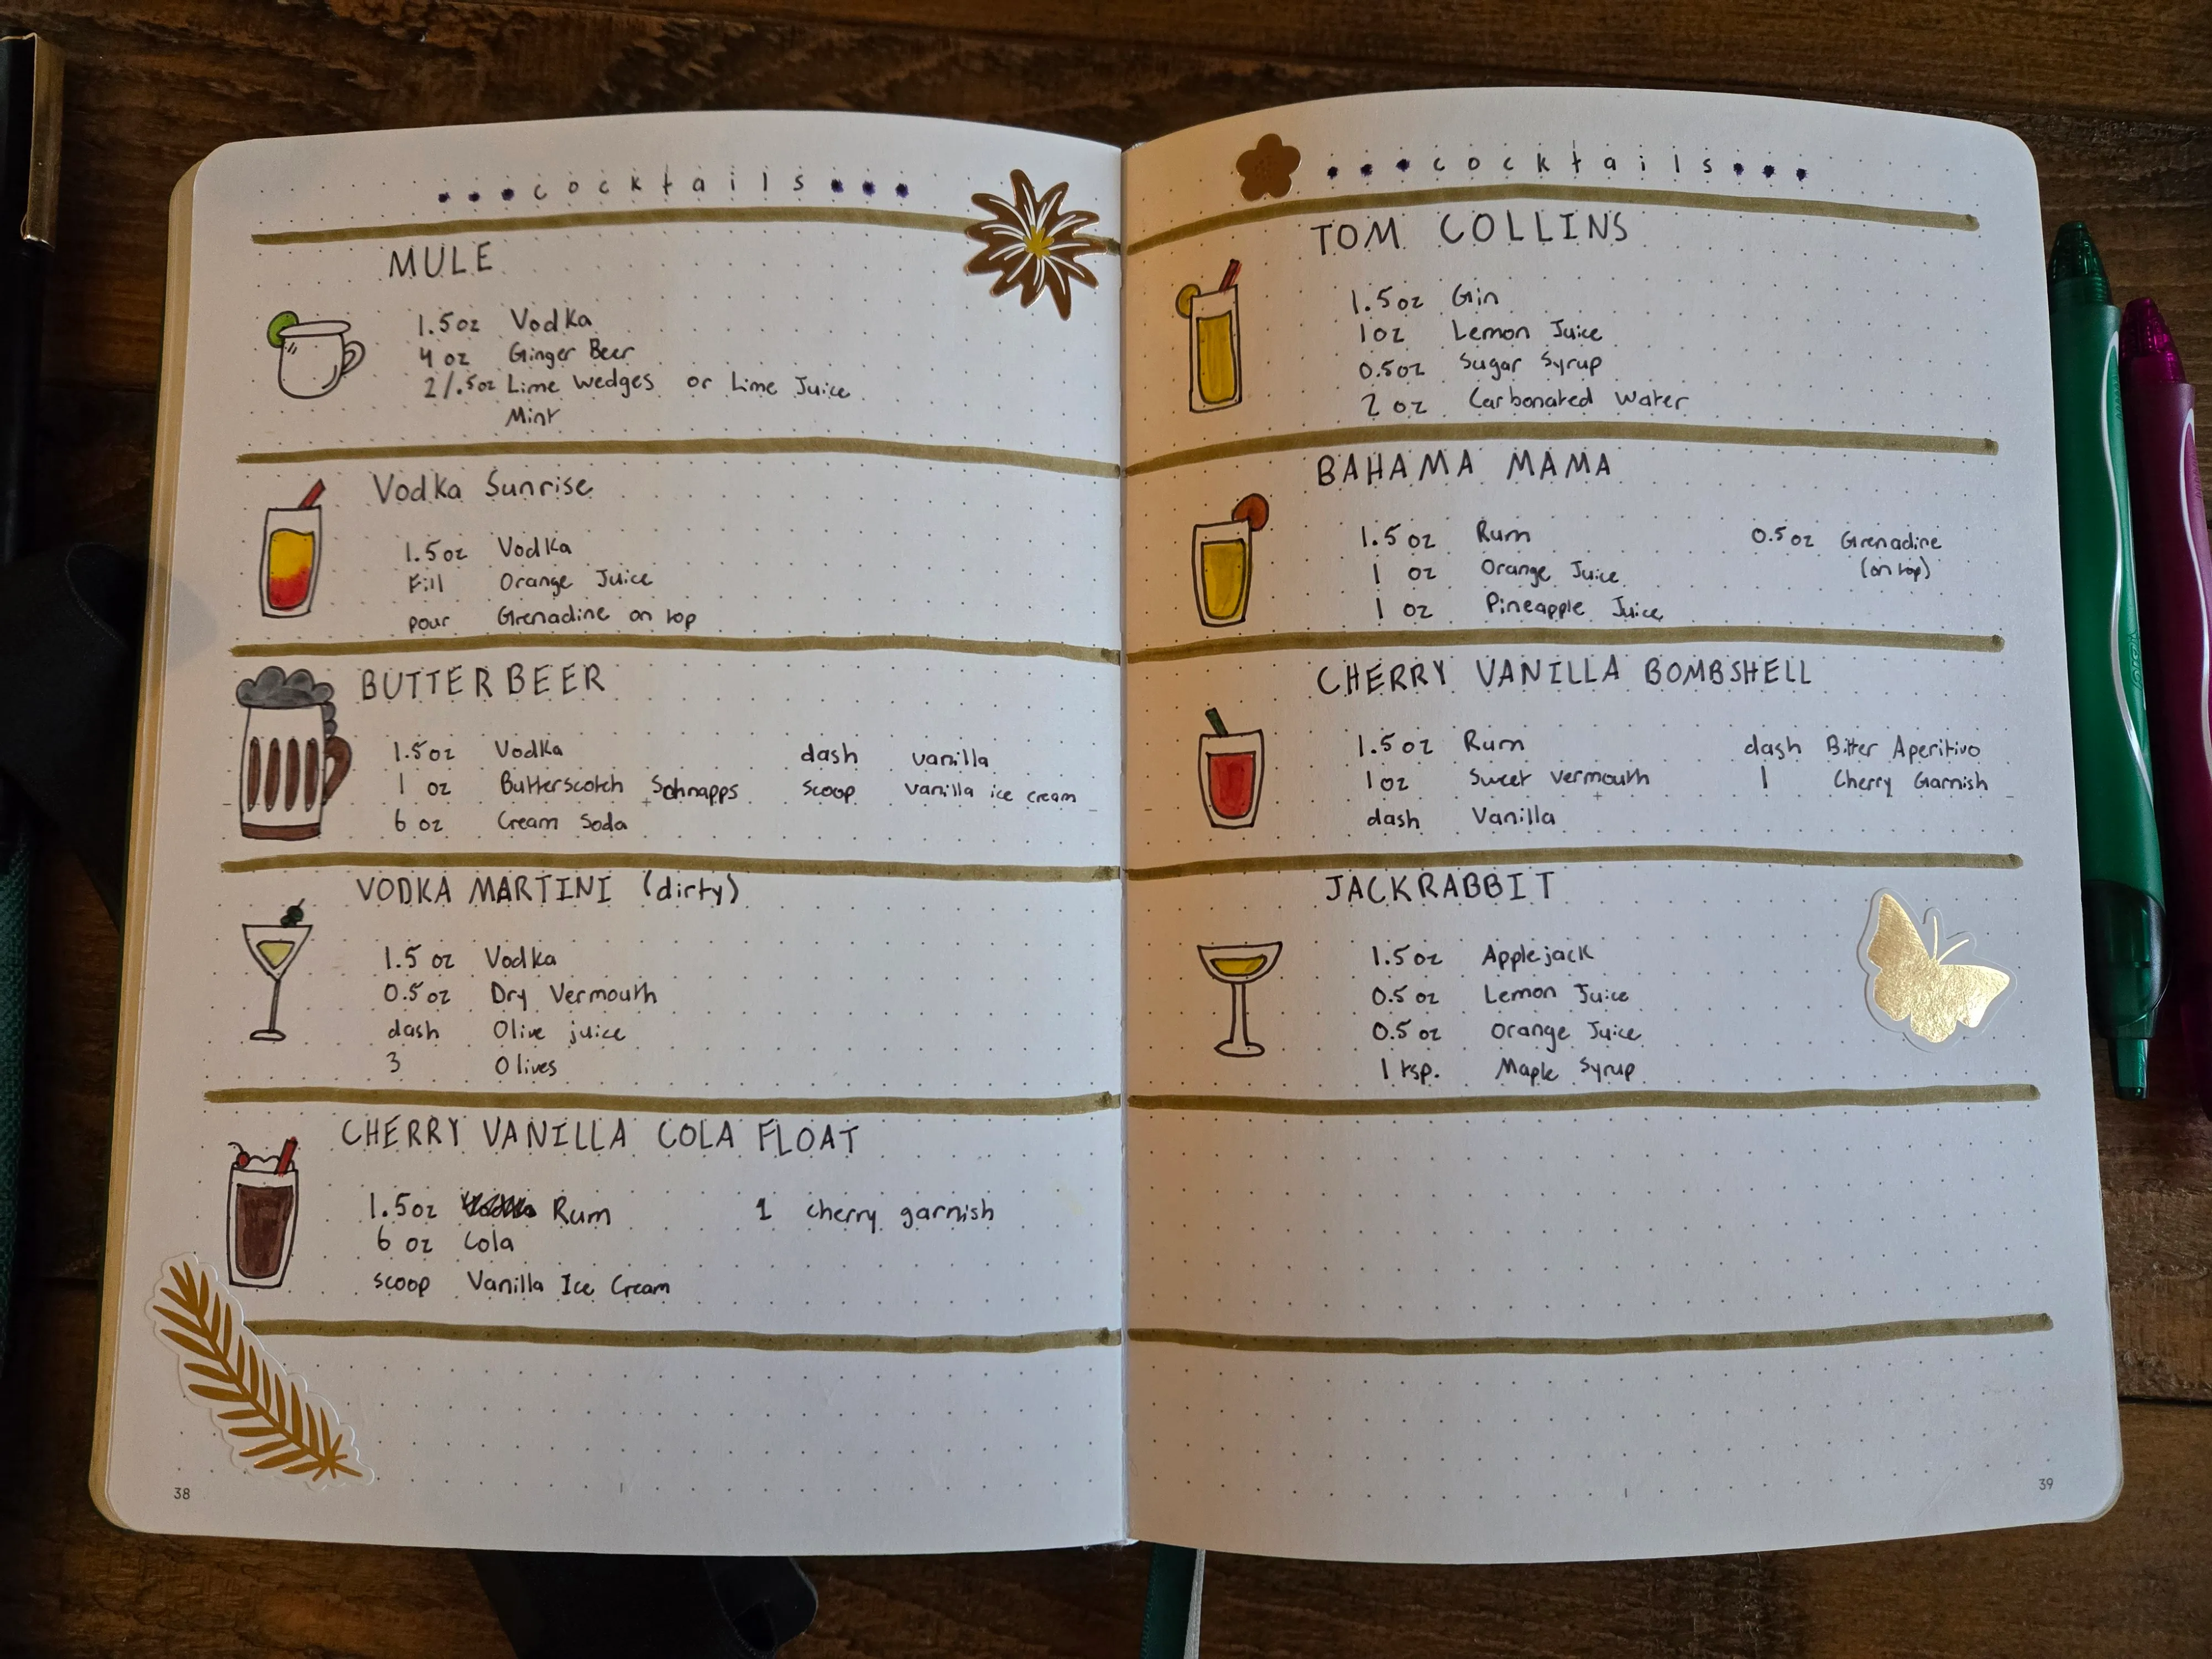 cocktails
MULE
1.5oz Vodka
4 oz Ginger Beer
2/.5oz Lime Wedges or Lime Juice
Mint
Vodka Sunrise
1.5oz Vodka
Fill Orange Juice
pour Grenadine on top
BUTTERBEER
1.5oz Vodka dash vanilla
1 oz Butterscotch Schnapps scoop vanilla ice cream
6 oz Cream Soda
VODKA MARTINI (dirty)
1.5 oz Vodka
0.5 oz Dry Vermouth
dash Olive juice
3 Olives
CHERRY VANILLA COLA FLOAT
1.5oz Rum 1 cherry garnish
6 oz Cola
scoop Vanilla Ice Cream
38
cocktails
TOM COLLINS
1.5oz Gin
1oz Lemon Juice
0.5oz Sugar Syrup
2 oz Carbonated Water
BAHAMA MAMA
1.5 oz Rum 0.5 oz Grenadine
1 oz Orange Juice (on top)
1 oz Pineapple Juice
CHERRY VANILLA BOMBSHELL
1.5 oz Rum dash Bitter Aperitivo
1oz Sweet Vermouth 1 Cherry Garnish
dash Vanilla
JACKRABBIT
1.5oz Applejack
0.5 oz Lemon Juice
0.5 oz Orange Juice
1 tsp. Maple Syrup
39